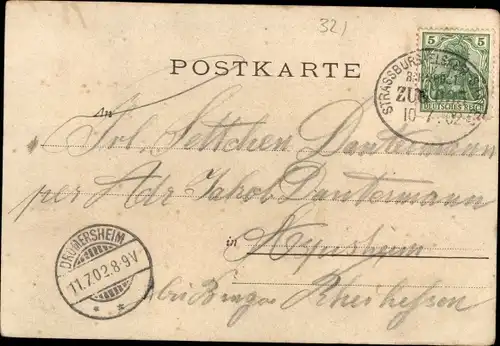 321
5
POSTKARTE
STRASSBURG
ZUG
10 7 02
DEUTSCHES REICH
An
Frl. Settchen Dautermann
per Adr Jakob Dautermann
in
DROMERSHEIM
11.7.02.8-9V
* *
bei Bingen Rheinhessen